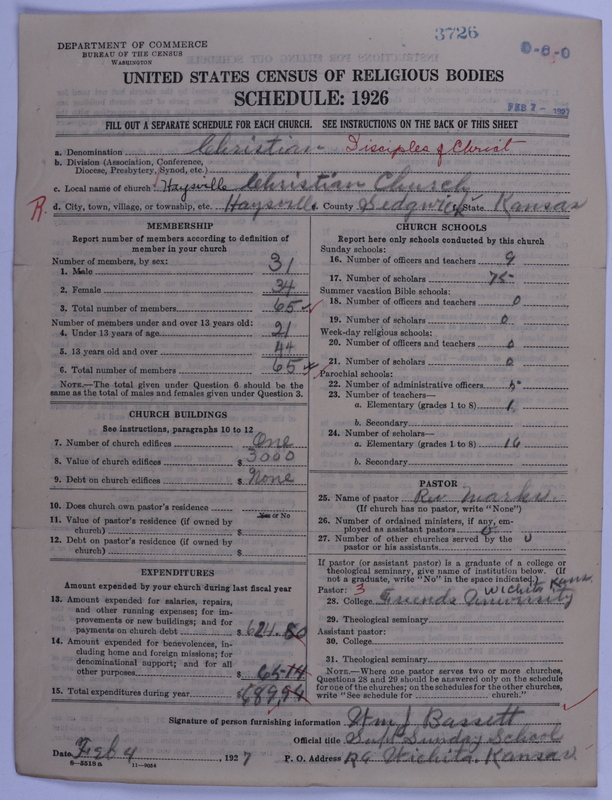 3726
0-6-0
DEPARTMENT OF COMMERCE
BUREAU OF THE CENSUS
WASHINGTON
UNITED STATES CENSUS OF RELIGIOUS BODIES
SCHEDULE: 1926
FEB 7 - 1927
FILL OUT A SEPARATE SCHEDULE FOR EACH CHURCH. SEE INSTRUCTIONS ON THE BACK OF THIS SHEET
a. Denomination Christian Disciples of Christ
b. Division (Association, Conference,
Diocese, Presbytery, Synod, etc.)
c. Local name of church Haysville Christian Church
R. d. City, town, village, or township, etc. Haysville County Sedgwick State Kansas
MEMBERSHIP
Report number of members according to definition of
member in your church
Number of members, by sex:
1. Male 31
2. Female 34
3. Total number of members 65
Number of members under and over 13 years old:
4. Under 13 years of age 21
5. 13 years old and over 44
6. Total number of members 65
NOTE.—The total given under Question 6 should be the
same as the total of males and females given under Question 3.
CHURCH BUILDINGS
See instructions, paragraphs 10 to 12
7. Number of church edifices One
8. Value of church edifices $ 3000
9. Debt on church edifices $ None
10. Does church own pastor's residence
Yes or No
11. Value of pastor's residence (if owned by
church) $
12. Debt on pastor's residence (if owned by
church) $
EXPENDITURES
Amount expended by your church during last fiscal year
13. Amount expended for salaries, repairs,
and other running expenses; for im-
provements or new buildings; and for
payments on church debt $ 624.80
14. Amount expended for benevolences, in-
cluding home and foreign missions; for
denominational support; and for all
other purposes $ 65.14
15. Total expenditures during year $ 689,94
CHURCH SCHOOLS
Report here only schools conducted by this church
Sunday schools:
16. Number of officers and teachers 9
17. Number of scholars 75
Summer vacation Bible schools:
18. Number of officers and teachers 0
19. Number of scholars 0
Week-day religious schools:
20. Number of officers and teachers 0
21. Number of scholars 0
Parochial schools:
22. Number of administrative officers
23. Number of teachers—
a. Elementary (grades 1 to 8) 1
b. Secondary
24. Number of scholars—
a. Elementary (grades 1 to 8) 16
b. Secondary
PASTOR
25. Name of pastor Rev Marks
(If church has no pastor, write "None")
26. Number of ordained ministers, if any, em-
ployed as assistant pastors 0
27. Number of other churches served by the 0
pastor or his assistants
If pastor (or assistant pastor) is a graduate of a college or
theological seminary, give name of institution below. (If
not a graduate, write "No" in the space indicated.)
Pastor: 3 Wichita Kans.
28. College Friends University
29. Theological seminary
Assistant pastor:
30. College
31. Theological seminary
NOTE.—Where one pastor serves two or more churches,
Questions 28 and 29 should be answered only on the schedule
for one of the churches; on the schedules for the other churches,
write "See schedule for church."
Signature of person furnishing information Wm J Bassett
Official title Supt Sunday School
Date Feb 4, 1927 P. O. Address R6 Wichita, Kansas
8-5518a 11-9064